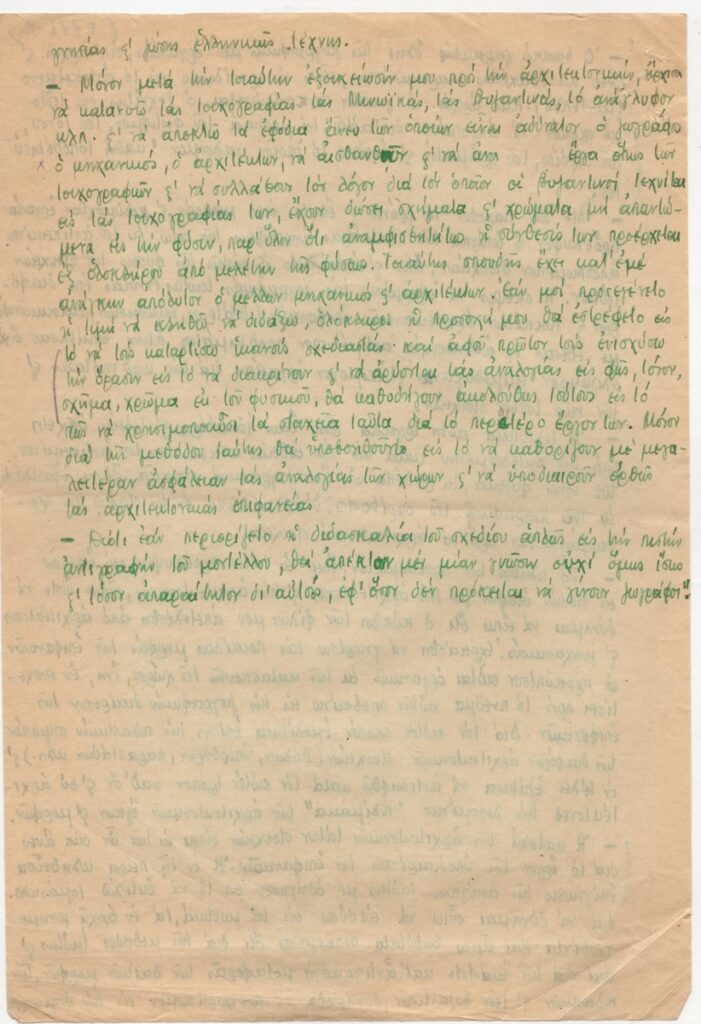 γνησίας ϛ' ζώσης ἑλληνικῆς τέχνης.
– Μόνον μετά τὴν τοιαύτην ἐξοικείωσίν μου πρός τὴν ἀρχιτεκτονικήν, ἤρχισα
νά κατανοῶ τάς τοιχογραφίας τάς Μινωϊκάς, τάς Βυζαντινάς, τό ἀνάγλυφον
κλπ. ϛ' νά ἀποκτῶ τά ἐφόδια ἄνευ τῶν ὁποίων εἶναι ἀδύνατον ὁ ζωγράφος
ὁ μηχανικός, ὁ ἀρχιτέκτων, νά αἰσθανθοῦν ϛ' νά ἀνα ἔργα ὅπως τῶν
τοιχογραφιῶν ϛ' νά συλλάβουν τόν λόγον διά τόν ὁποῖον οἱ βυζαντινοί τεχνῖται
εἰς τάς τοιχογραφίας των, ἔχουν δώσει σχήματα ϛ' χρώματα μή ἀπαντώ-
μενα εἰς τήν φύσιν, παρ' ὅλον ὅτι ἀναμφισβητήτως ἡ σύνθεσίς των προέρχεται
ἐξ ὁλοκλήρου ἀπό μελέτην τῆς φύσεως. Τοιαύτης σπουδῆς ἔχει κατ' ἐμέ
ἀνάγκην ἀπόλυτον ὁ μέλλων μηχανικός ϛ' ἀρχιτέκτων. Ἐάν μοί προσεγένετο
ἡ τιμή νά κληθῶ νά διδάξω, ὁλόκληρος ἡ προσοχή μου θά ἐστρέφετο εἰς
τό νά τούς καταρτίσω ἱκανούς σχεδιαστάς καί ἀφοῦ πρῶτον τούς ἐνισχύσω
τήν ὅρασιν εἰς τό νά διακρίνουν ϛ' νά ἀρύονται τάς ἀναλογίας εἰς φῶς, τόνον,
σχῆμα, χρῶμα ἐκ τοῦ φυσικοῦ, θά καθοδήγουν ἀμελούθως τούτους εἰς τό
πῶς νά χρησιμοποιοῦσι τά στοιχεῖα ταῦτα διά τό περαιτέρο ἔργον των. Μόνον
διά τῆς μεθόδου ταύτης θά ὑπεβοηθοῦντο εἰς τό νά καθορίζουν μέ μεγα-
λειτέραν ἀσφάλειαν τάς ἀναλογίας τῶν χώρων ϛ' νά ὑποδιαιροῦν ὀρθῶς
τάς ἀρχιτεκτονικάς ἐπιφανείας
– Διότι ἐάν περιορίζετο ἡ διδασκαλία τοῦ σχεδίου ἁπλῶς εἰς τήν πιστήν
ἀντιγραφήν τοῦ μοντέλλου, θά ἀπέκτων μέν μίαν γνῶσιν οὐχί ὅμως ἴσως
ϛ' τόσον ἀπαραίτητον δι' αὐτούς, ἐφ' ὅσον δέν πρόκειται νά γίνουν ζωγράφοι".